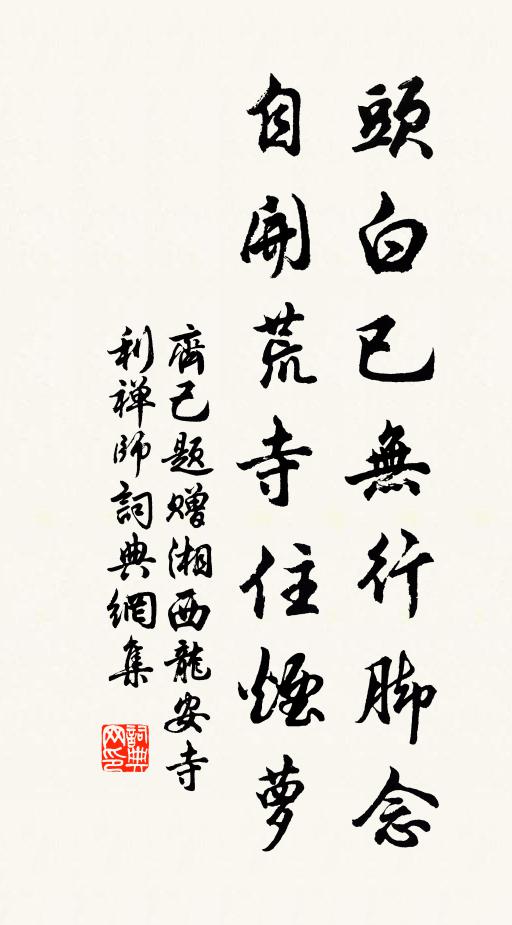 頭白已無行脚念
自開荒寺住煙蘿
齊己题赠湘西龍安寺
利禅師詞典網集
詞典
网印